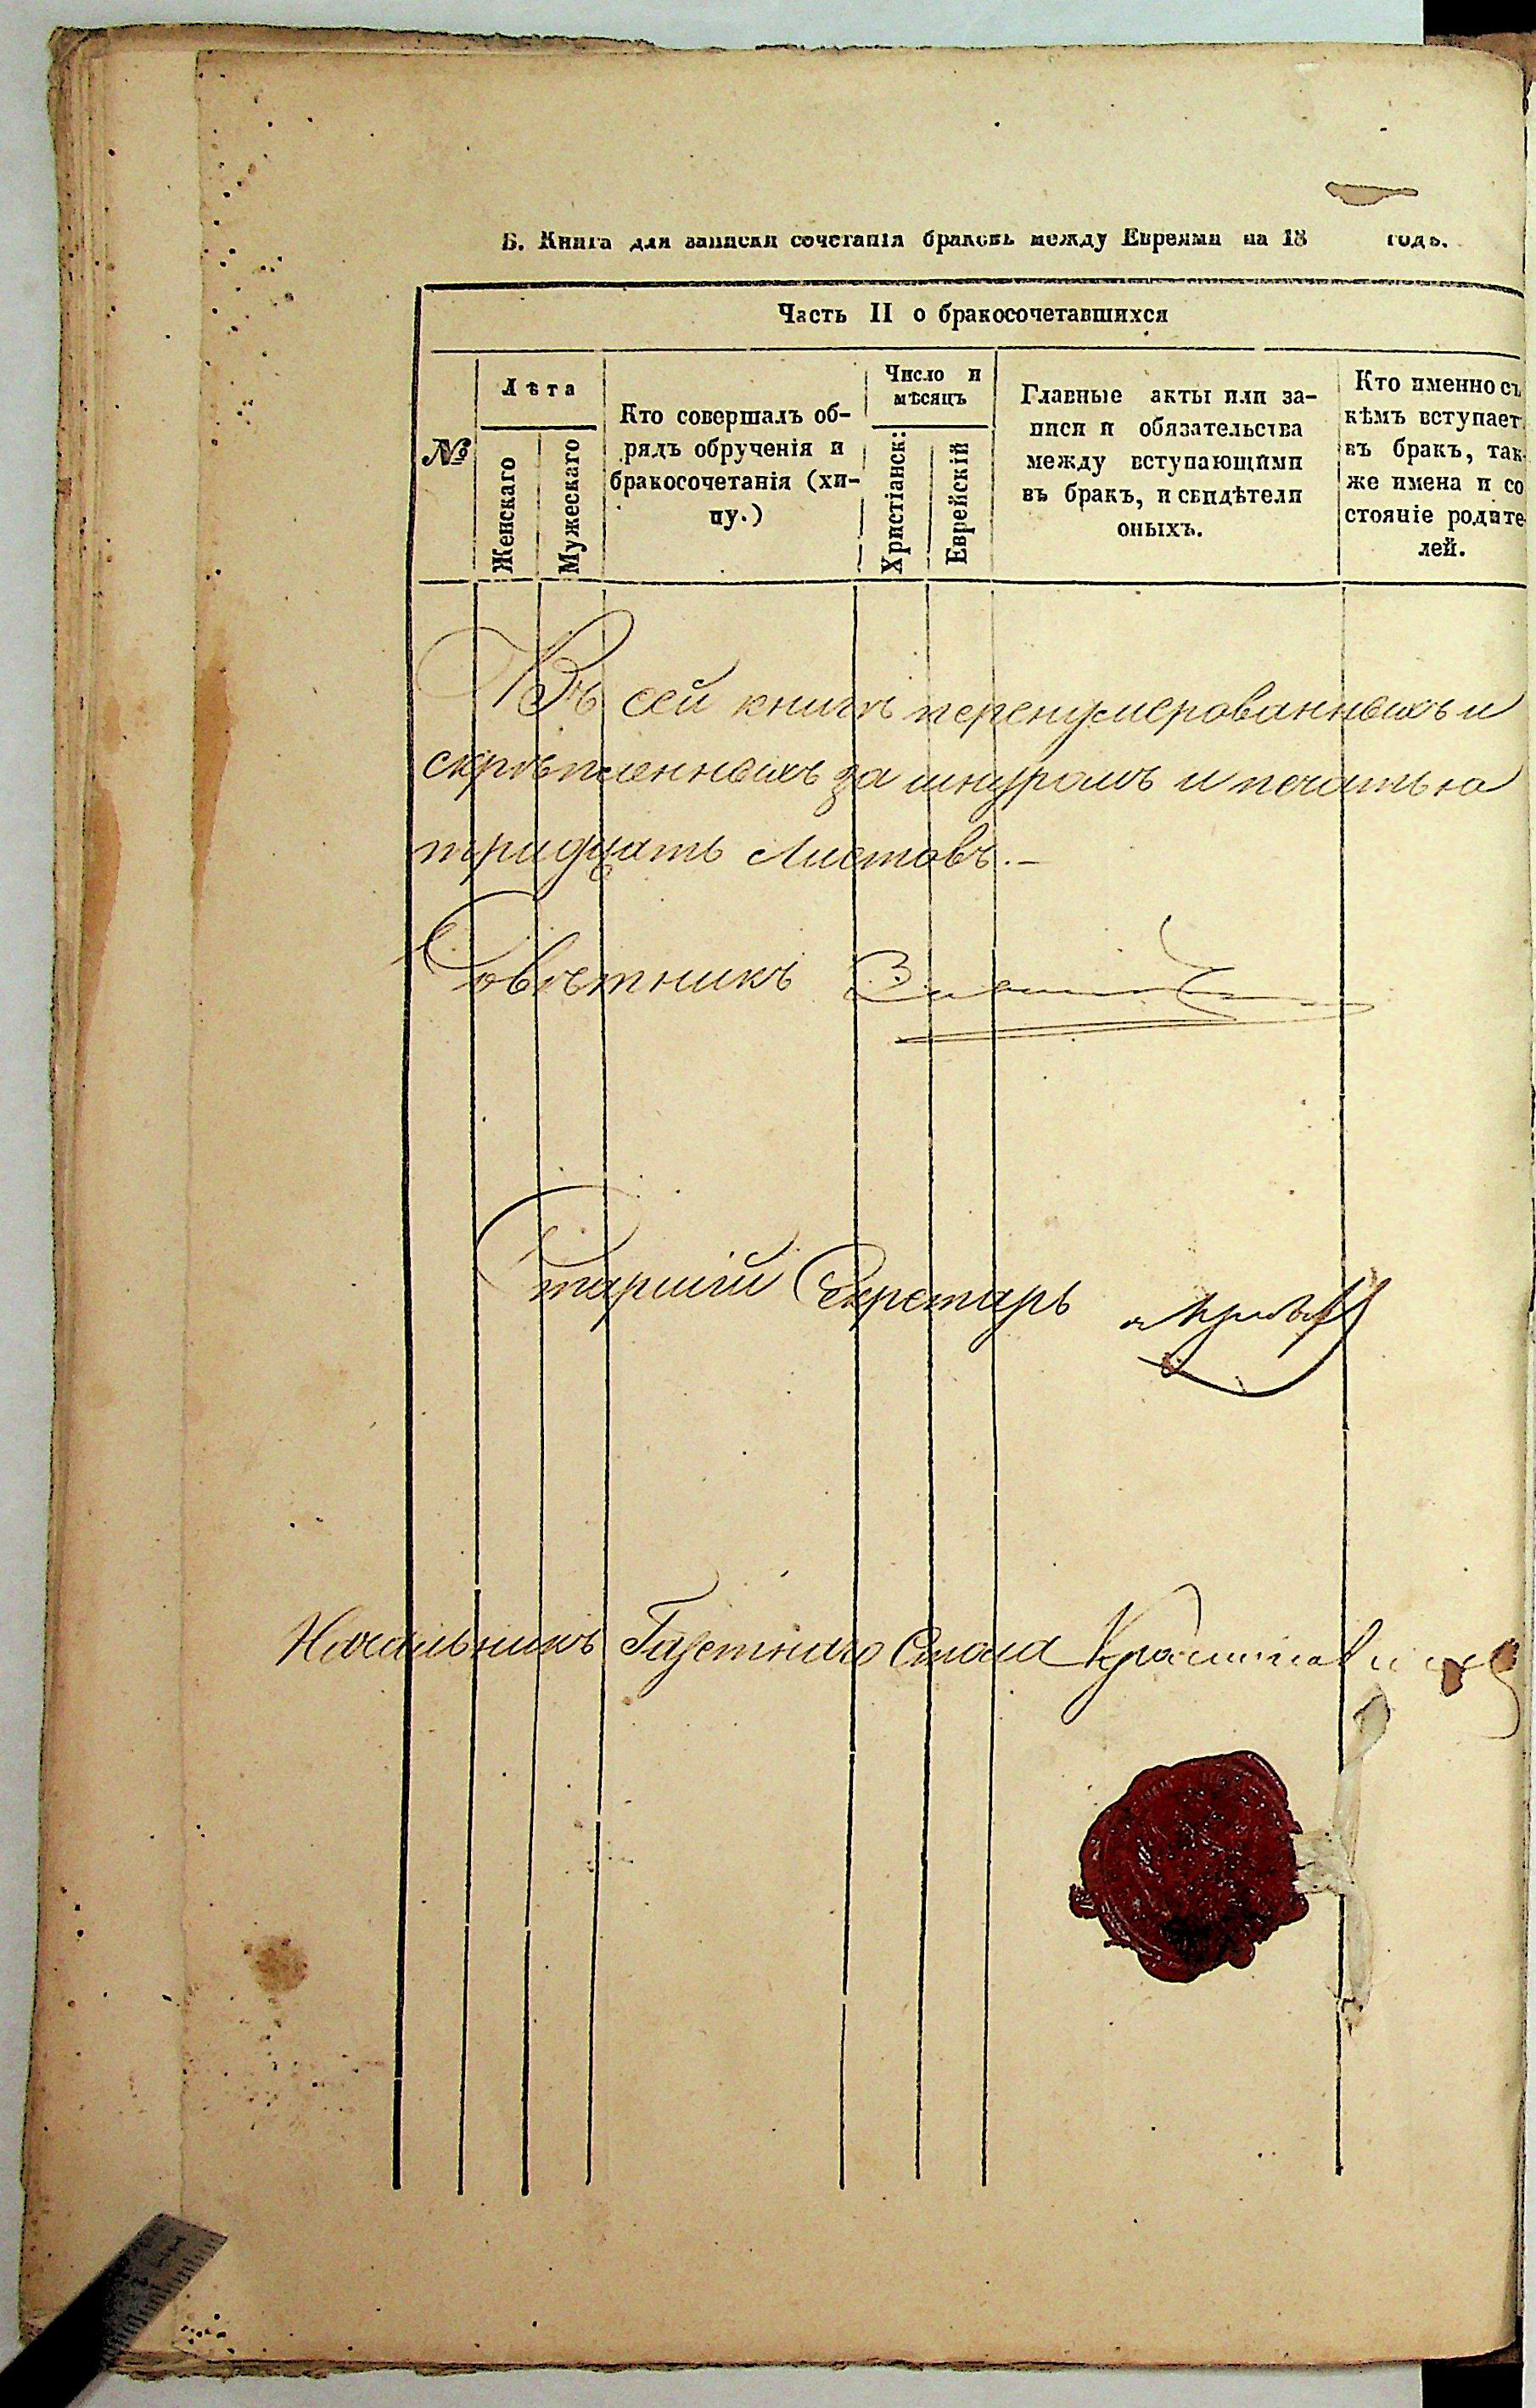 Б. Книга для записки сочетанія браковъ между Евреями на 18 годъ.
Часть II о бракосочетавшихся
№
Лѣта
Женскаго
Мужескаго
Кто совершалъ об-
рядъ обрученія и
бракосочетанія (хи-
пу.)
Число и
мѣсяцъ
Христіанск:
Еврейскій
Главные акты или за-
писи и обязательства
между вступающими
въ бракъ, и свидѣтели
оныхъ.
Кто именно съ
кѣмъ вступает
въ бракъ, так-
же имена и со
стояніе родите
лей.
Въ сей книгѣ перенумерованныхъ и
скрѣпленныхъ за шнуромъ и печатью
тридцать листовъ.–
Совѣтникъ
Старшій Секретарь
Начальникъ Газетнаго Стола